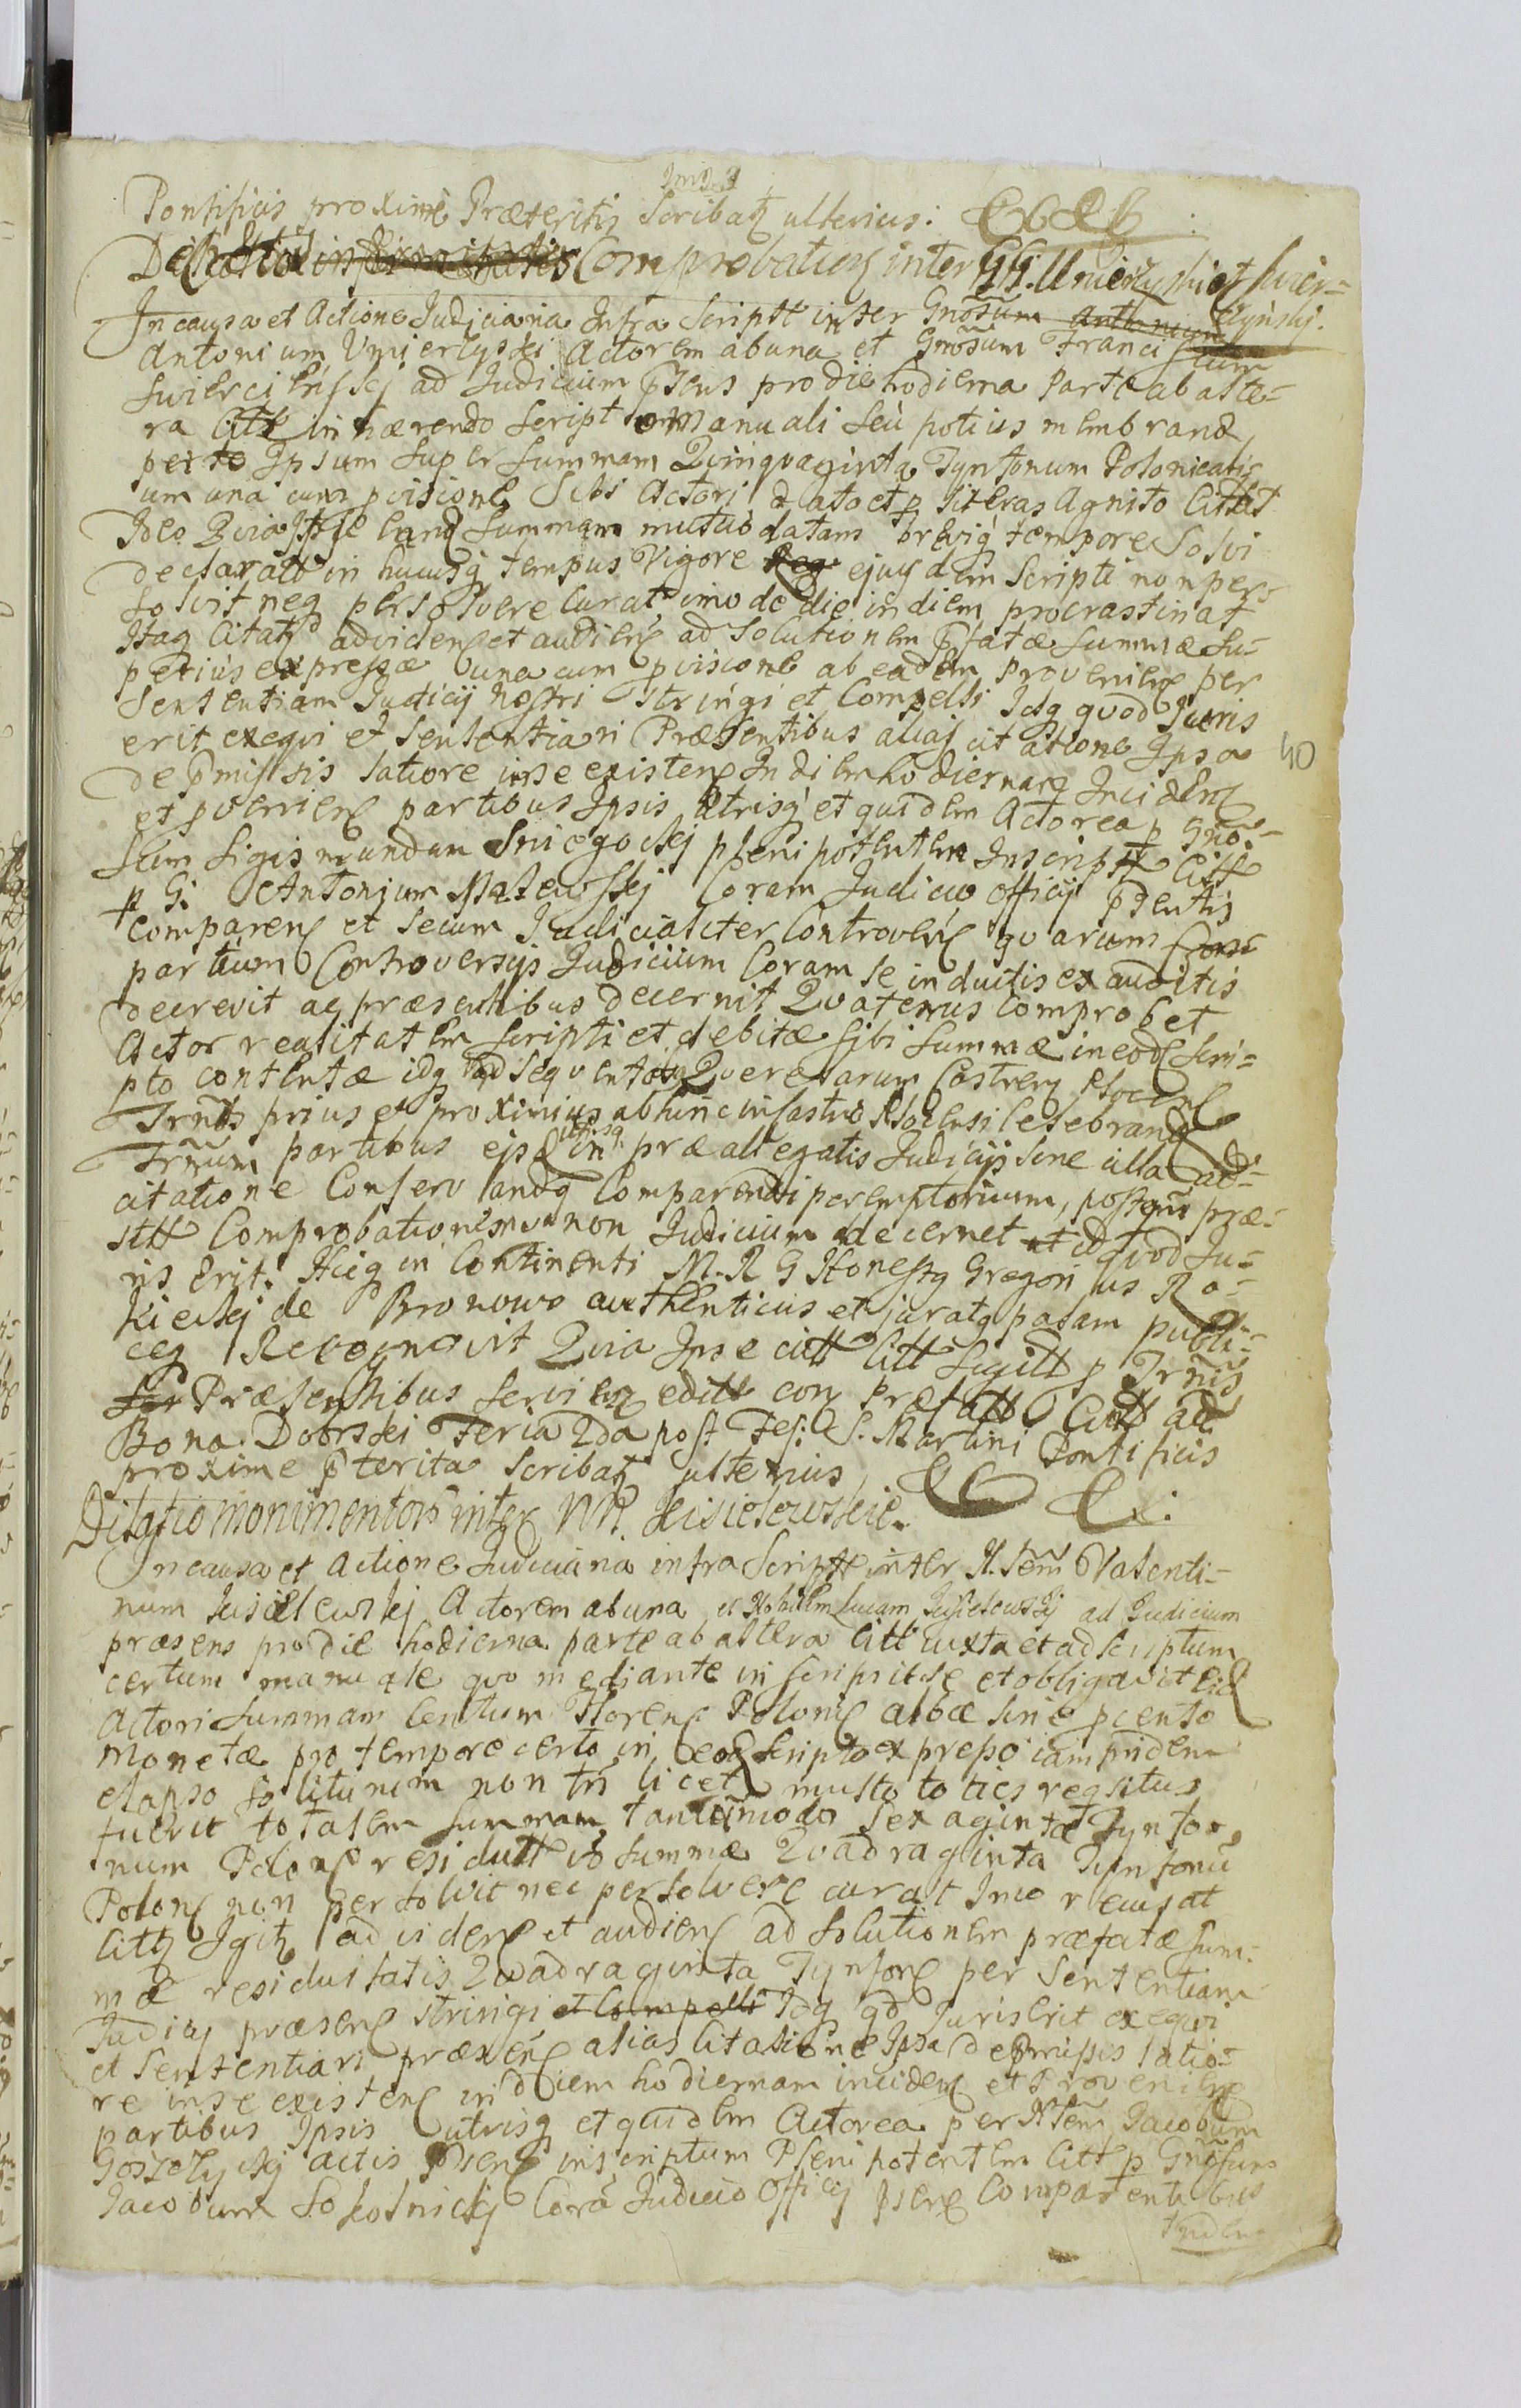 Pontificis proxime Præteritis Scribatz ulterius:
Comprobatios inter GG. Umierzyski et Swier=
czynskj.
In causa et Actione Judiciaria Infra Scriptt inter Gnosum Antonium
Antonium Umierzyski Actorem ab una et Gnosum Franciscum
Swiercinskj ad Judicium pñs pro die hodierna Parte ab alte=
ra Citt in hærendo Scripto Manuali seu potius membrana
per Ipsum Super Summam Quinquaginta Tynfonum Polonicalis
um una cum pvisione Sibi Actori dato et p literas Agnito Cittat
Ideo Quia Ipse hanc Summam mutuo datam brevig tempore Solvi
declaratt in hucusq tempus Vigore Reg ejusdem Scripti non per=
solvit neq persolvere curat imo de die in diem procrastinat
Itaq Citatz ad videnc et audienc ad Solutionem pfatæ Summæ Su=
perius expressæ una cum pvisione ab eadem Provenienc per
Sententiam Judicij Nostri stringi et Compelli Idq quod Juris
erit exequi et Sententiari Præsentibus alias citatione Ipsa
de pmissis latiore in se existenc In diem hodiernam Incidenc
40
et pvenienc partibus Ipsis utrisq et quidem Actorea p Gno=
sum Sigismundum Sniegockj plenipotentem Inscriptt Citt
p G. Antonium Malewskj Coram Judicio Officij pdentis
Comparenc et Secum Judicialiter Controvenc quarum
partium Controversijs Judicium Coram se inductis ex auditis
decrevit ac præsentibus decernit Quatenus Comprobet
Actor realitatem Scripti et debitæ sibi Summæ in eodc Scri=
pto contentæ idq ad sequentes Querelarum Castrenc
Trnos prius et proximius abhinc in Castro celebrand
Trñum partibus ejsd utrisq in præallegatis Judicijs sine ulla ad=
citatione Conservandq Comparendi peremptorium, postqm præ=
stt Comprobationem non Judicium decernet id quod Ju=
ris Erit. Hicq in Continenti M. R G Honestq Gregorius Ro=
kickj de Bronowo authenticus et juratq palam publi=
ceq Recognovit Quia Ipse citt Citt p Trñis
Præsentibus Servienc editt con Præfatt Citt ad
Bona Dobrski Feria 2da post Fes: S. Martini Pontificis
proxime pterita Scribatz ulterius
Dilatio monimentorũ inter NN. Kisielewskie.
In causa et Actione Judiciaria infra Scriptt inter N.lem Valenti=
num Kisielewskj Actorem ab una et Nobilem Lucam Kisielewskj ad Judicium
præsens pro die hodierna parte ab altera Citt juxta et ad Scriptum
certum manuale quo mediante in scripsit se et obligavit eid
Actori Summam Centum Florenc Polonc albæ sine pcento
Monetæ pro tempore certo in eodc scripto expresso jam pridem
elapso soliturum non tñ licet multo toties reqsitus
fuerit totalem Summam tantũmodo Sexaginta Tynfo=
num Polonc residuitt vo Summæ Quadraginta Tynfonũ
Polonc non persolvit nec persolvere curat Imo recusat
Cittz Igitz ad videnc et audienc ad Solutionem præfatæ Sum=
mæ residuitatis Quadraginta Tynfonc per Sententiam
Judicij præsenc stringi et Compelli Idq qd Juris Erit exequi
et Sententiari præsenc alias Citatione Ipsa de pmissis latio=
re in se existenc in diem hodiernam incidenc et Provenienc
partibus Ipsis utrisq et quidem Actorea per N.lem Jacobum
Goszczyckj actis psenc inscriptum Plenipotentem Citt p Gnosum
Jacobum Sokolnickj Corã Judicio Officij psenc Comparentibus